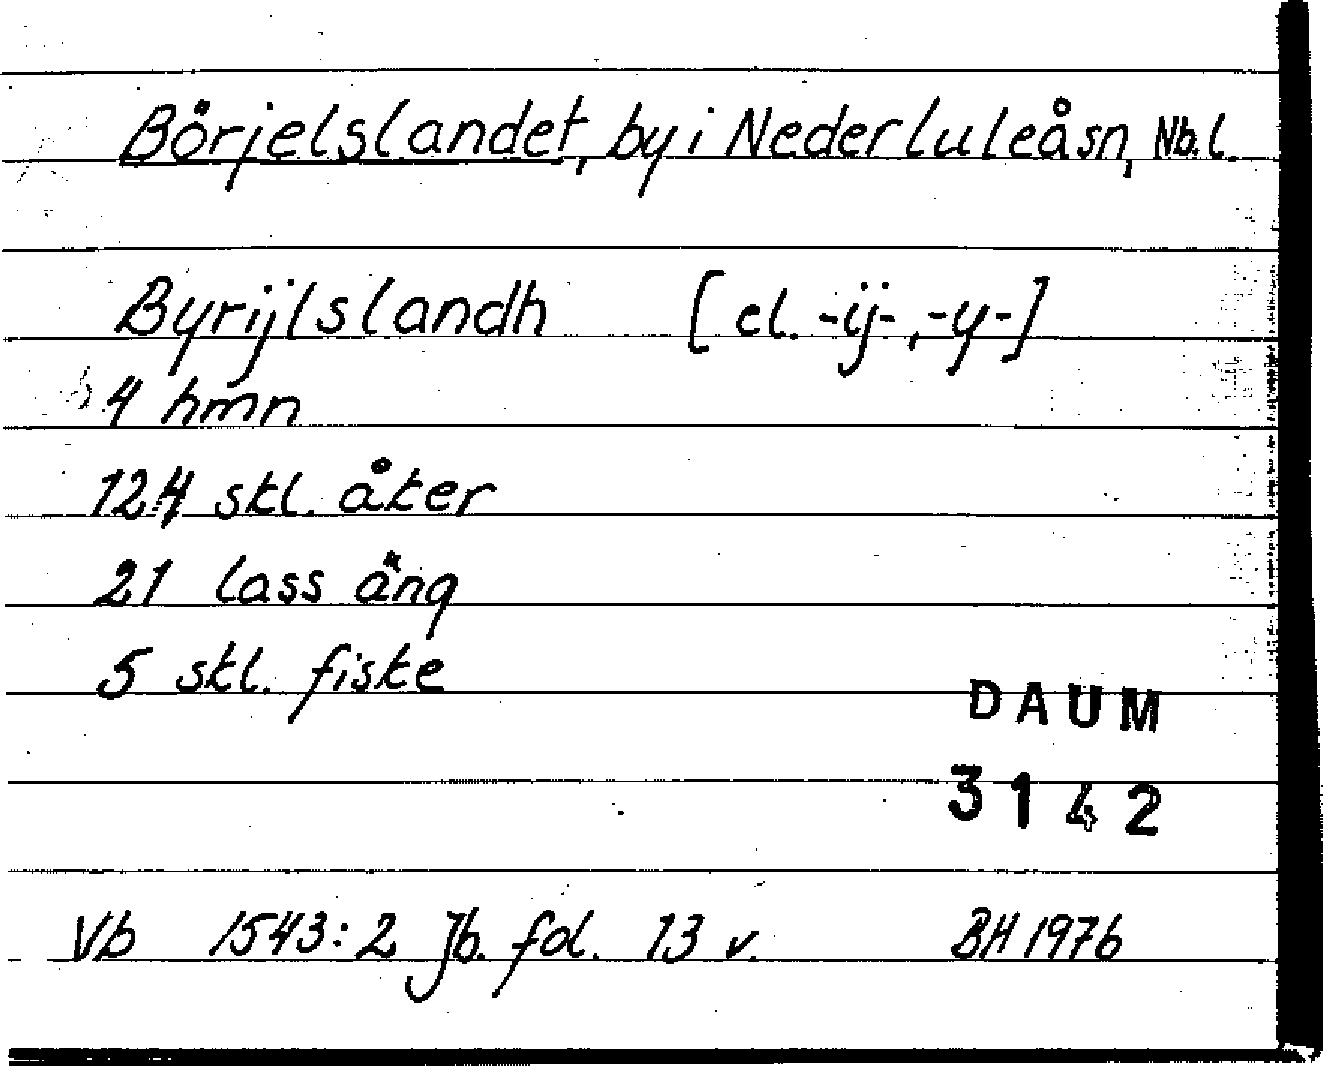 Börjelslandet, by i Nederluleå sn, Nb.l.
Byrijlslandh [el. -ÿ-, -y-]
4 hmn
124 skl. åker
21 lass äng
5 skl. fiske
DAUM
3142
Vb 1543:2 Jb. fol. 13 v. BH 1976